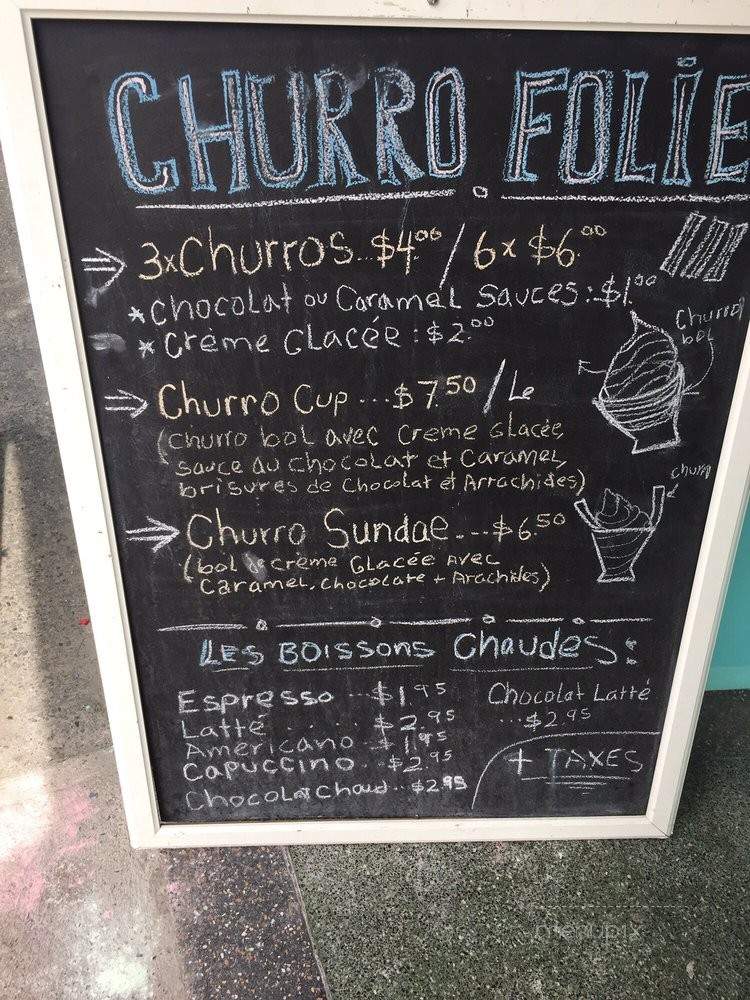 CHURRO FOLIE
3xChurros..$4.00/6x $6.00
*Chocolat ou Caramel Sauces:.$1.00
*Crème Glacée : $2.00
Churro bol
Churro Cup ...$7.50/Le
(churro bol avec Creme glacée,
sauce au chocolat et Caramel,
brisures de Chocolat et Arrachides)
churro
Churro Sundae...$6.50
(bol de crème Glacée Avec
Caramel, chocolate + Arachides)
LES BOISSONS Chaudes:
Espresso ...$1.95
Latté ....$2.95
Americano ..$1.95
Capuccino..$2.95
Chocolat chaud..$2.95
Chocolat Latté
...$2.95
+ TAXES
menupix